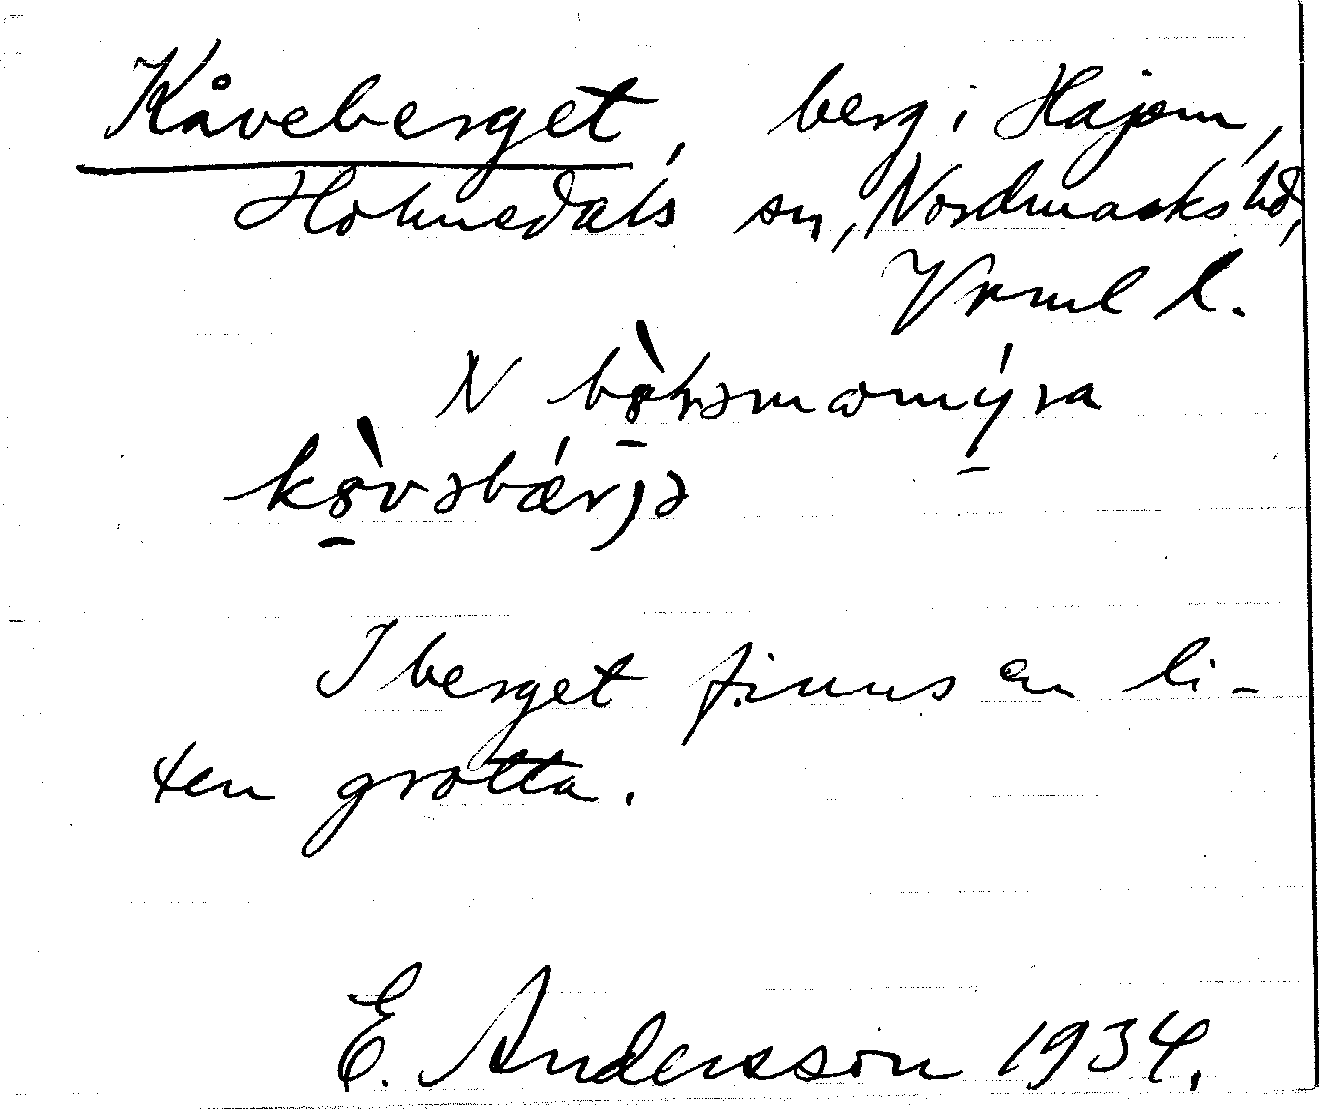 Kåveberget, berg i Häjom,
Holmedals sn, Nordmarks hd,
Vrml l.
N
I berget finns en li-
ten grotta.
E. Andersson 1934.